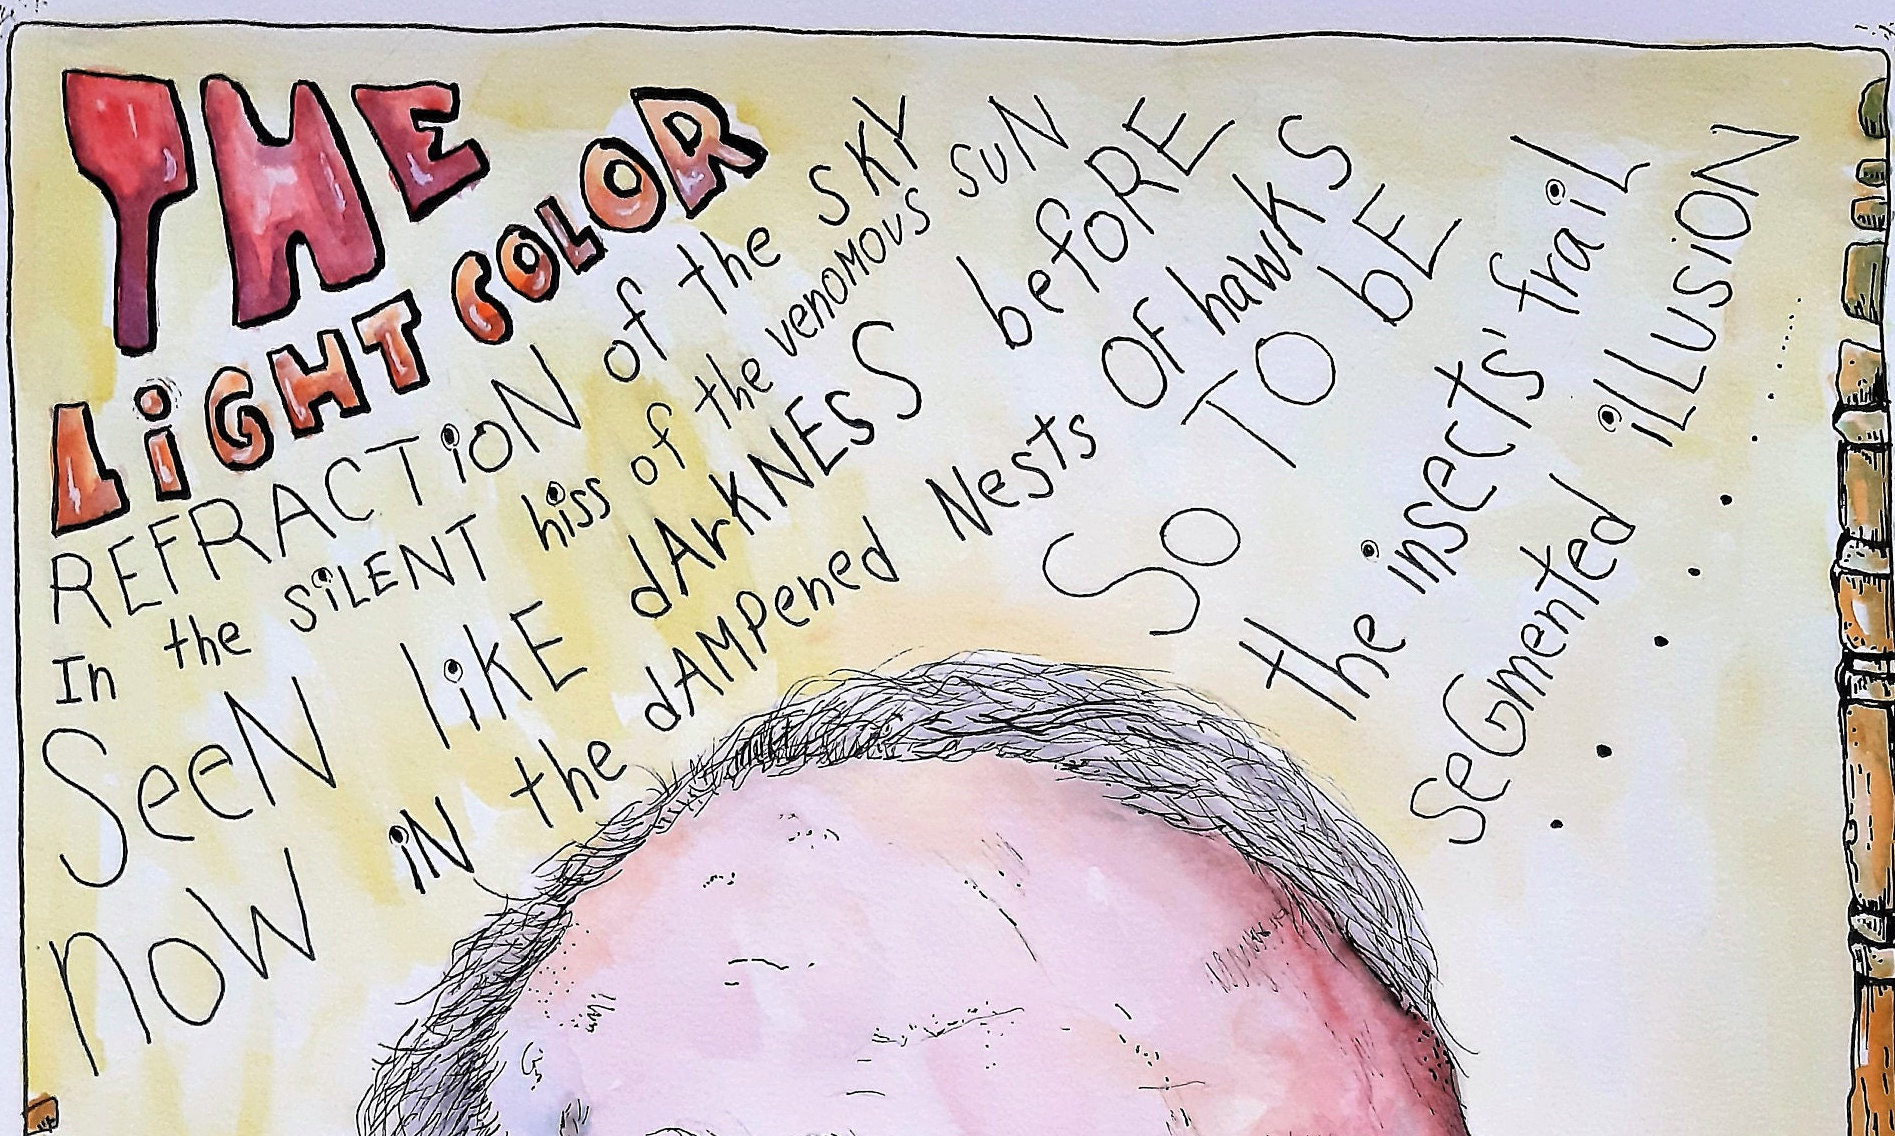 THE
LiGHT COLOR
REFRACTiON of the SKY
In the SiLENT hiss of the venoMOUS SuN
SeeN liKE dArKNEsS befoRE
noW iN the dAMPened Nests OF hawkS
SO TO bE
the insects' fraiL
seGmented iLLusiON